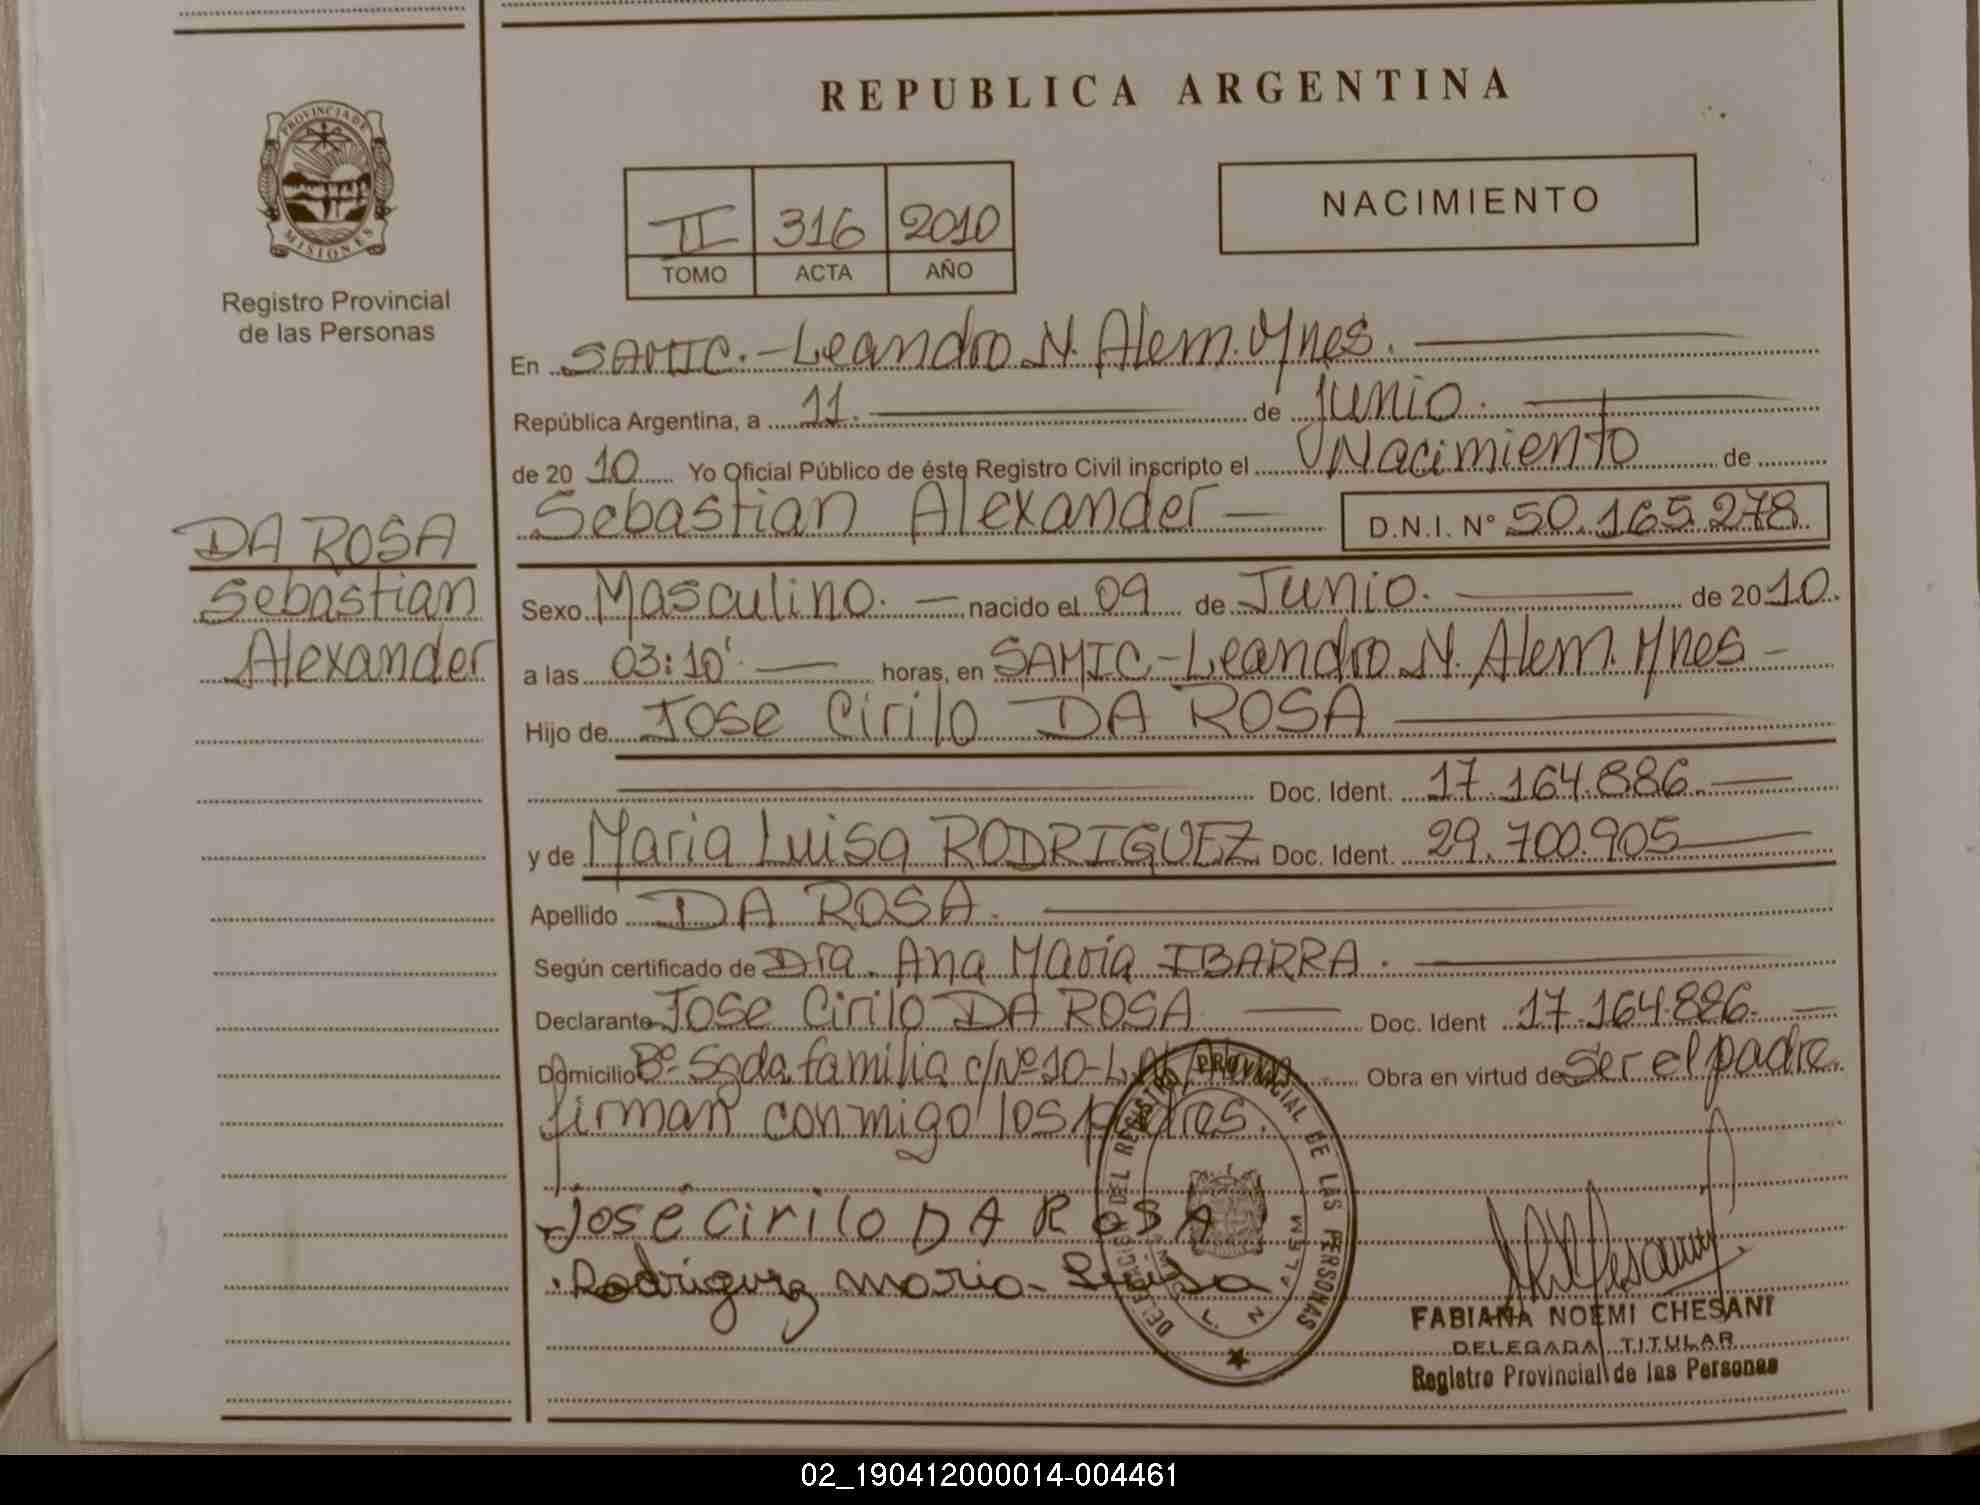 REPUBLICA ARGENTINA
PROVINCIA DE
MISIONES
Registro Provincial
de las Personas
II 316 2010
TOMO ACTA AÑO
NACIMIENTO
En SAMIC.-Leandro N. Alem. Mnes.
República Argentina, a 11. de Junio.
de 20 10 Yo Oficial Público de éste Registro Civil inscripto el Nacimiento de
DA ROSA
Sebastian
Alexander
Sebastian Alexander D.N.I. N° 50.165.278
Sexo Masculino. nacido el 09 de Junio. de 20 10.
a las 03:10'. horas, en SAMIC-Leandro N. Alem. Mnes
Hijo de Jose Cirilo DA ROSA
Doc. Ident. 17.164.886
y de Maria Luisa RODRIGUEZ Doc. Ident. 29.700.905
Apellido DA ROSA.
Según certificado de Dra. Ana María IBARRA.
Declarante Jose Cirilo DA ROSA Doc. Ident 17.164.886.
Domicilio B° Sgda familia c/N° 10-L.N. Alem Obra en virtud de ser el padre.
firman conmigo los padres.
José Cirilo DA ROSA
Rodriguez maria Luisa
DELEGACION DEL REGISTRO PROVINCIAL DE LAS PERSONAS
L. N. ALEM
FABIANA NOEMI CHESANI
DELEGADA TITULAR
Registro Provincial de las Personas
02_190412000014-004461